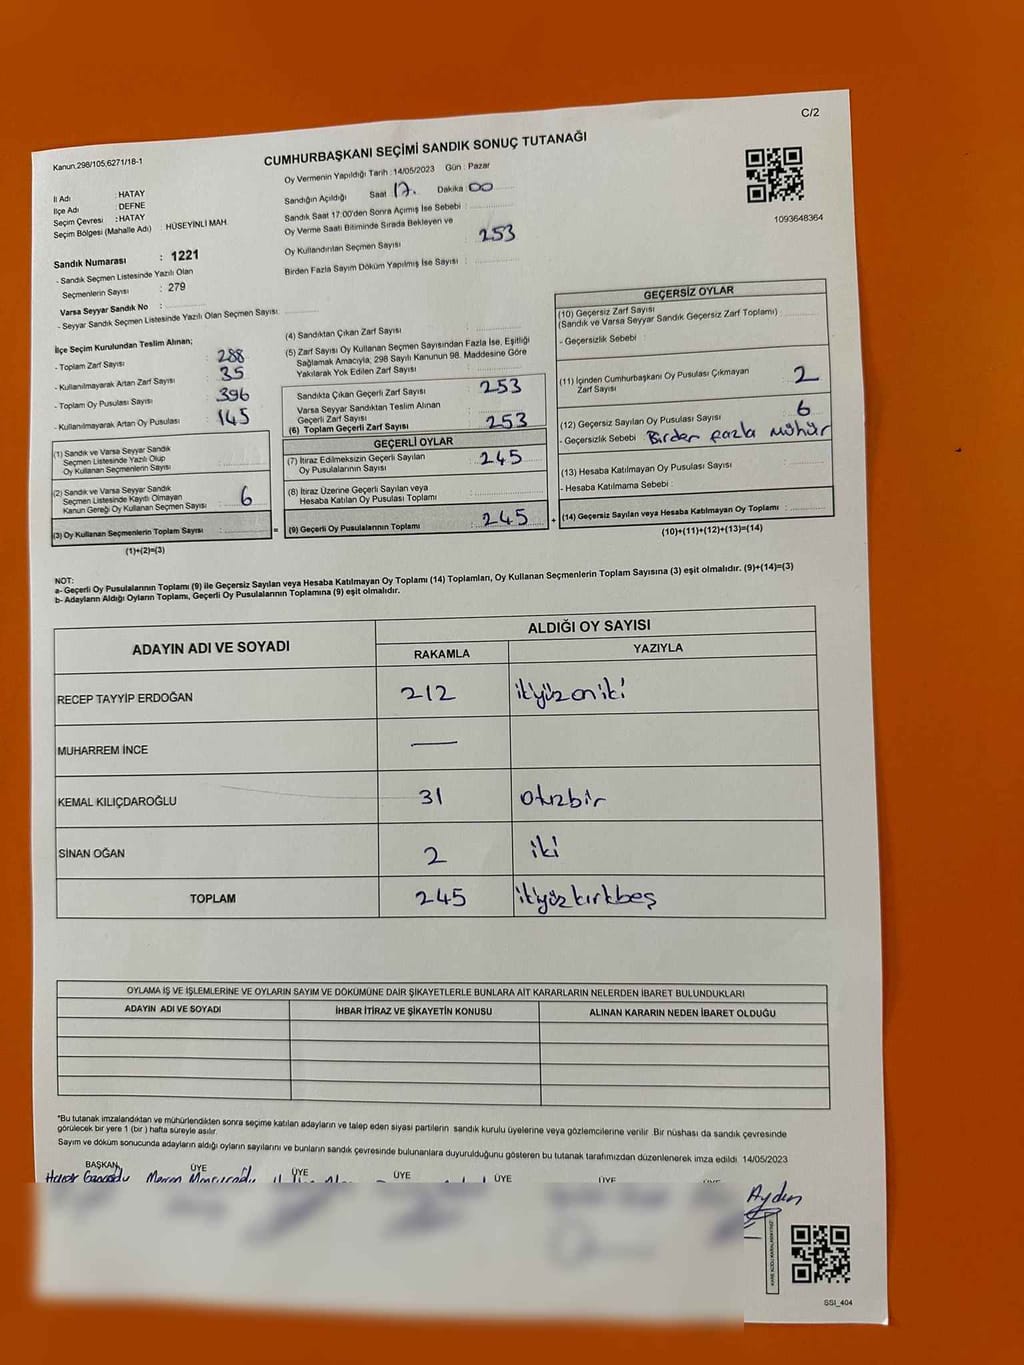 C/2
Kanun.298/105,6271/18-1
CUMHURBAŞKANI SEÇİMİ SANDIK SONUÇ TUTANAĞI
Oy Vermenin Yapıldığı Tarih : 14/05/2023 Gün : Pazar
İl Adı : HATAY
İlçe Adı : DEFNE
Seçim Çevresi : HATAY
Seçim Bölgesi (Mahalle Adı) : HÜSEYİNLİ MAH.
Sandığın Açıldığı Saat 17. Dakika 00
Sandık Saat 17:00'den Sonra Açımış İse Sebebi :
Oy Verme Saati Bitiminde Sırada Bekleyen ve
Oy Kullandırılan Seçmen Sayısı : 253
Birden Fazla Sayım Döküm Yapılmış İse Sayısı :
1093648364
Sandık Numarası : 1221
- Sandık Seçmen Listesinde Yazılı Olan
Seçmenlerin Sayısı : 279
Varsa Seyyar Sandık No :
- Seyyar Sandık Seçmen Listesinde Yazılı Olan Seçmen Sayısı:
İlçe Seçim Kurulundan Teslim Alınan;
- Toplam Zarf Sayısı : 288
- Kullanılmayarak Artan Zarf Sayısı : 35
- Toplam Oy Pusulası Sayısı : 396
- Kullanılmayarak Artan Oy Pusulası : 145
(1) Sandık ve Varsa Seyyar Sandık
Seçmen Listesinde Yazılı Olup
Oy Kullanan Seçmenlerin Sayısı :
(2) Sandık ve Varsa Seyyar Sandık
Seçmen Listesinde Kayıtlı Olmayan
Kanun Gereği Oy Kullanan Seçmen Sayısı : 6
(3) Oy Kullanan Seçmenlerin Toplam Sayısı :
(1)+(2)=(3)
=
(4) Sandıktan Çıkan Zarf Sayısı :
(5) Zarf Sayısı Oy Kullanan Seçmen Sayısından Fazla İse, Eşitliği
Sağlamak Amacıyla, 298 Sayılı Kanunun 98. Maddesine Göre
Yakılarak Yok Edilen Zarf Sayısı :
Sandıkta Çıkan Geçerli Zarf Sayısı : 253
Varsa Seyyar Sandıktan Teslim Alınan
Geçerli Zarf Sayısı :
(6) Toplam Geçerli Zarf Sayısı : 253
GEÇERLİ OYLAR
(7) İtiraz Edilmeksizin Geçerli Sayılan
Oy Pusulalarının Sayısı : 245
(8) İtiraz Üzerine Geçerli Sayılan veya
Hesaba Katılan Oy Pusulası Toplamı :
(9) Geçerli Oy Pusulalarının Toplamı : 245
+
GEÇERSİZ OYLAR
(10) Geçersiz Zarf Sayısı
(Sandık ve Varsa Seyyar Sandık Geçersiz Zarf Toplamı) :
- Geçersizlik Sebebi :
(11) İçinden Cumhurbaşkanı Oy Pusulası Çıkmayan
Zarf Sayısı : 2
(12) Geçersiz Sayılan Oy Pusulası Sayısı : 6
- Geçersizlik Sebebi Birden fazla mühür
(13) Hesaba Katılmayan Oy Pusulası Sayısı :
- Hesaba Katılmama Sebebi :
(14) Geçersiz Sayılan veya Hesaba Katılmayan Oy Toplamı :
(10)+(11)+(12)+(13)=(14)
NOT:
a- Geçerli Oy Pusulalarının Toplamı (9) ile Geçersiz Sayılan veya Hesaba Katılmayan Oy Toplamı (14) Toplamları, Oy Kullanan Seçmenlerin Toplam Sayısına (3) eşit olmalıdır. (9)+(14)=(3)
b- Adayların Aldığı Oyların Toplamı, Geçerli Oy Pusulalarının Toplamına (9) eşit olmalıdır.
ADAYIN ADI VE SOYADI
ALDIĞI OY SAYISI
RAKAMLA YAZIYLA
RECEP TAYYİP ERDOĞAN 212 ikiyüz oniki
MUHARREM İNCE —
KEMAL KILIÇDAROĞLU 31 otuzbir
SİNAN OĞAN 2 iki
TOPLAM 245 ikiyüzkırkbeş
OYLAMA İŞ VE İŞLEMLERİNE VE OYLARIN SAYIM VE DÖKÜMÜNE DAİR ŞİKAYETLERLE BUNLARA AİT KARARLARIN NELERDEN İBARET BULUNDUKLARI
ADAYIN ADI VE SOYADI İHBAR İTİRAZ VE ŞİKAYETİN KONUSU ALINAN KARARIN NEDEN İBARET OLDUĞU
*Bu tutanak imzalandıktan ve mühürlendikten sonra seçime katılan adayların ve talep eden siyasi partilerin sandık kurulu üyelerine veya gözlemcilerine verilir .Bir nüshası da sandık çevresinde
görülecek bir yere 1 (bir ) hafta süreyle asılır.
Sayım ve döküm sonucunda adayların aldığı oyların sayılarını ve bunların sandık çevresinde bulunanlara duyurulduğunu gösteren bu tutanak tarafımızdan düzenlenerek imza edildi. 14/05/2023
BAŞKAN ÜYE ÜYE ÜYE ÜYE ÜYE
Ayden
SSI_404